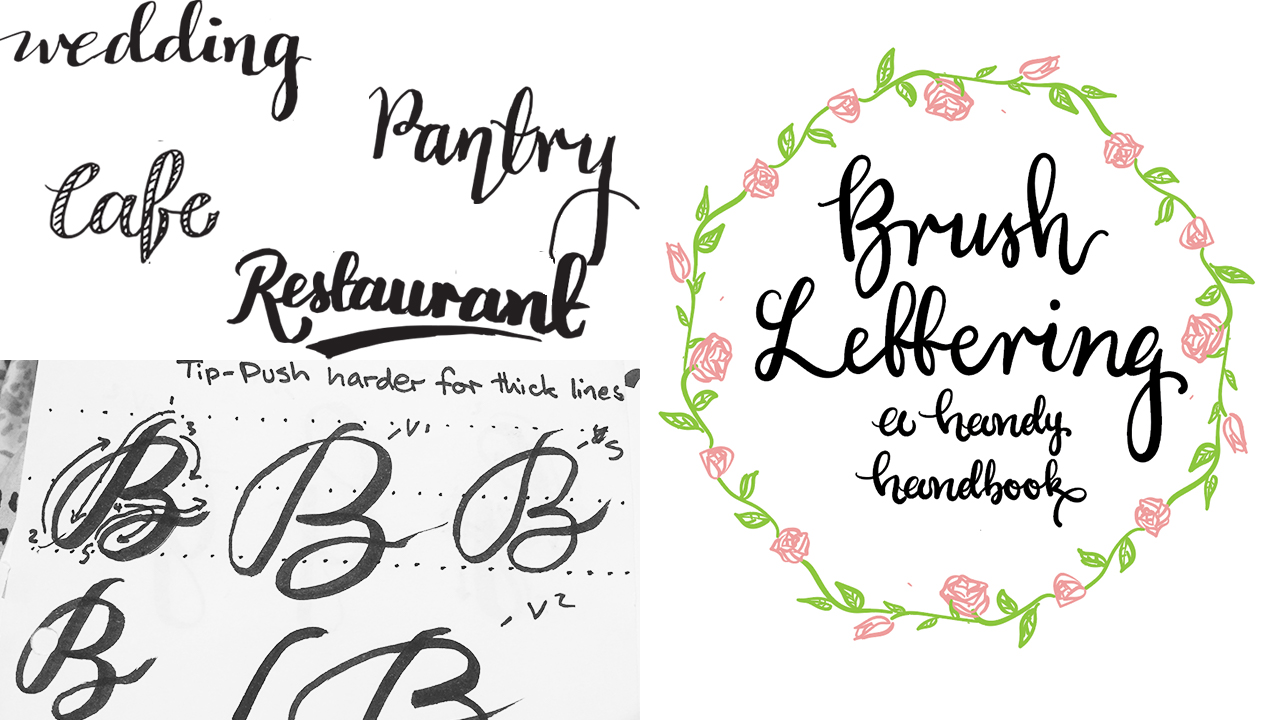 wedding
Pantry
Cafe
Restaurant
Tip-Push harder for thick lines
1
3
2
4
2
5
B
V1
B
S
B
B
V2
B
Brush
Lettering
a handy
handbook